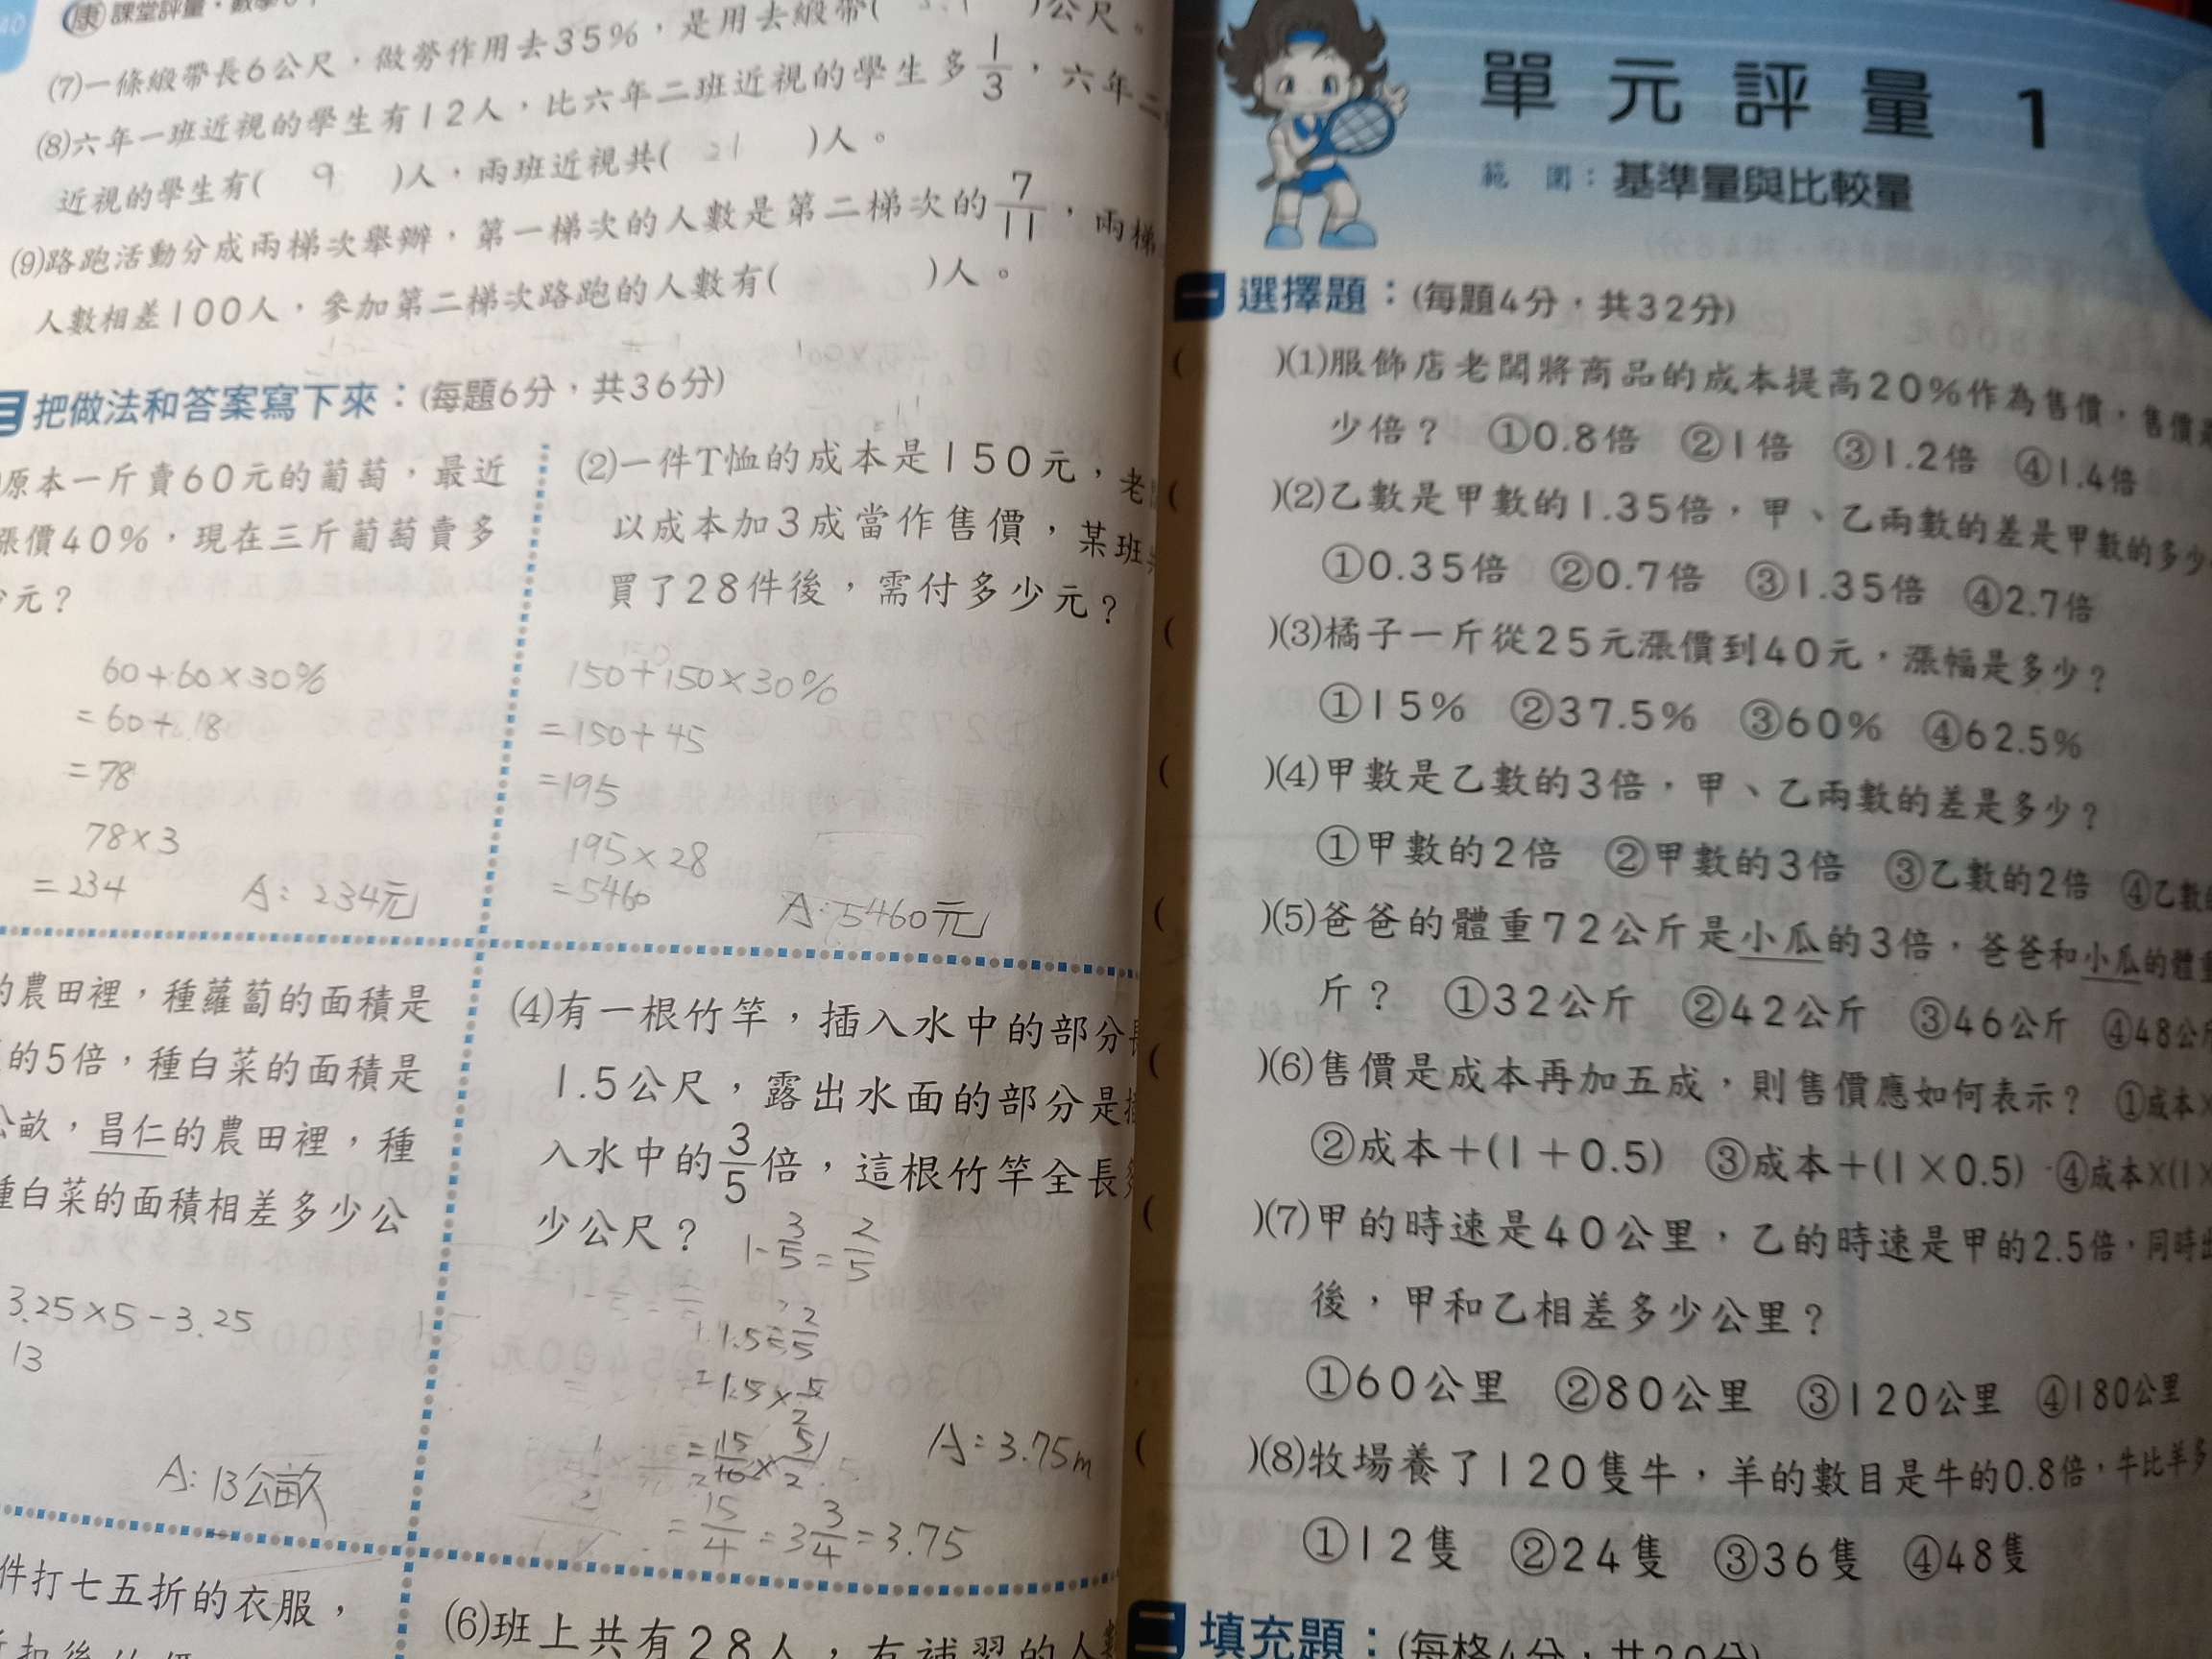 康 課堂評量‧數學
(7)一條緞帶長6公尺,做勞作用去35%,是用去緞帶( )公尺。
(8)六年一班近視的學生有12人,比六年二班近視的學生多1/3,六年二
近視的學生有( 9 )人,兩班近視共( 21 )人。
(9)路跑活動分成兩梯次舉辦,第一梯次的人數是第二梯次的7/11,兩梯
人數相差100人,參加第二梯次路跑的人數有( )人。
三 把做法和答案寫下來:(每題6分,共36分)
原本一斤賣60元的葡萄,最近
漲價40%,現在三斤葡萄賣多
少元?
60+60×30%
=60+18
=78
78×3
=234 A:234元
(2)一件T恤的成本是150元,老
以成本加3成當作售價,某班
買了28件後,需付多少元?
150+150×30%
=150+45
=195
195×28
=5460 A:5460元
的農田裡,種蘿蔔的面積是
的5倍,種白菜的面積是
公畝,昌仁的農田裡,種
種白菜的面積相差多少公
3.25×5-3.25
13
A:13公畝
(4)有一根竹竿,插入水中的部分長
1.5公尺,露出水面的部分是插
入水中的3/5倍,這根竹竿全長多
少公尺?
1-3/5=2/5
1.5÷2/5
=1.5×5/2
=15/10×5/2
=15/4=3 3/4=3.75
A:3.75m
件打七五折的衣服,
(6)班上共有28人,有補習的人數
單元評量 1
範 圍:基準量與比較量
一 選擇題:(每題4分,共32分)
( )(1)服飾店老闆將商品的成本提高20%作為售價,售價是
少倍? ①0.8倍 ②1倍 ③1.2倍 ④1.4倍
( )(2)乙數是甲數的1.35倍,甲、乙兩數的差是甲數的多少
①0.35倍 ②0.7倍 ③1.35倍 ④2.7倍
( )(3)橘子一斤從25元漲價到40元,漲幅是多少?
①15% ②37.5% ③60% ④62.5%
( )(4)甲數是乙數的3倍,甲、乙兩數的差是多少?
①甲數的2倍 ②甲數的3倍 ③乙數的2倍 ④乙數
( )(5)爸爸的體重72公斤是小瓜的3倍,爸爸和小瓜的體重
斤? ①32公斤 ②42公斤 ③46公斤 ④48公斤
( )(6)售價是成本再加五成,則售價應如何表示? ①成本×
②成本+(1+0.5) ③成本+(1×0.5) ④成本×(1×
( )(7)甲的時速是40公里,乙的時速是甲的2.5倍,同時出
後,甲和乙相差多少公里?
①60公里 ②80公里 ③120公里 ④180公里
( )(8)牧場養了120隻牛,羊的數目是牛的0.8倍,牛比羊多
①12隻 ②24隻 ③36隻 ④48隻
二 填充題:(每格4分,共20分)